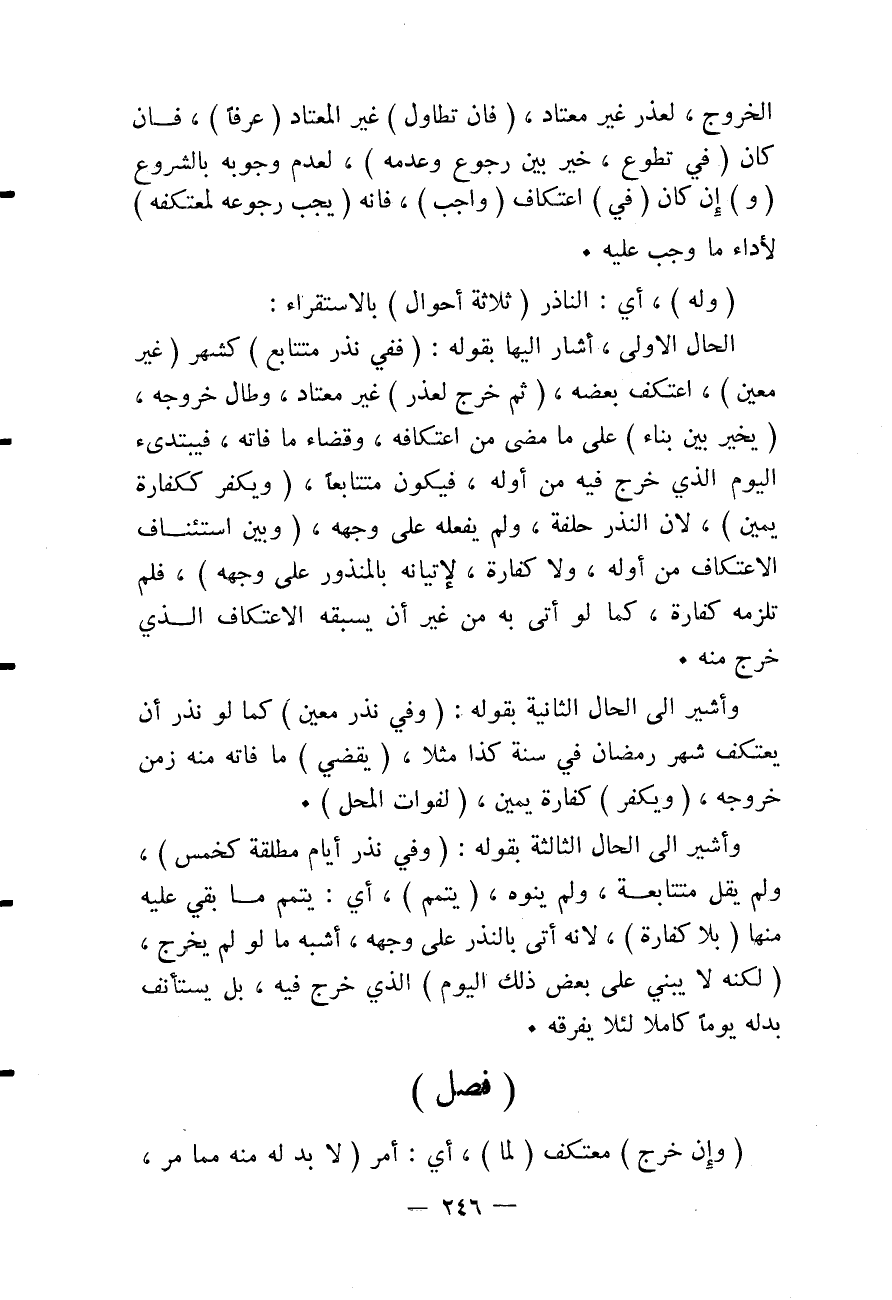 الخروج ، لعذر غير معتاد ، ( فان تطاول ) غير المعتاد ( عرفاً ) ، فـــان
كان ( في تطوع ، خير بين رجوع وعدمه ) ، لعدم وجوبه بالشروع
( و ) إن كان ( في ) اعتكاف ( واجب ) ، فانه ( يجب رجوعه لمعتكفه )
لأداء ما وجب عليه .
( وله ) ، أي : الناذر ( ثلاثة أحوال ) بالاستقراء :
الحال الاولى ، أشار اليها بقوله : ( ففي نذر متتابع ) كشهر ( غير
معين ) ، اعتكف بعضه ، ( ثم خرج لعذر ) غير معتاد ، وطال خروجه ،
( يخير بين بناء ) على ما مضى من اعتكافه ، وقضاء ما فاته ، فيبتدىء
اليوم الذي خرج فيه من أوله ، فيكون متتابعاً ، ( ويكفر ككفارة
يمين ) ، لان النذر حلفة ، ولم يفعله على وجهه ، ( وبين استئنـــاف
الاعتكاف من أوله ، ولا كفارة ، لإتيانه بالمنذور على وجهه ) ، فلم
تلزمه كفارة ، كما لو أتى به من غير أن يسبقه الاعتكاف الـــذي
خرج منه .
وأشير الى الحال الثانية بقوله : ( وفي نذر معين ) كما لو نذر أن
يعتكف شهر رمضان في سنة كذا مثلا ، ( يقضي ) ما فاته منه زمن
خروجه ، ( ويكفر ) كفارة يمين ، ( لفوات المحل ) .
وأشير الى الحال الثالثة بقوله : ( وفي نذر أيام مطلقة كخمس ) ،
ولم يقل متتابعـــة ، ولم ينوه ، ( يتمم ) ، أي : يتمم مـــا بقي عليه
منها ( بلا كفارة ) ، لانه أتى بالنذر على وجهه ، أشبه ما لو لم يخرج ،
( لكنه لا يبني على بعض ذلك اليوم ) الذي خرج فيه ، بل يستأنف
بدله يوماً كاملا لئلا يفرقه .
( فصل )
( وإن خرج ) معتكف ( لما ) ، أي : أمر ( لا بد له منه مما مر ،
— ٢٤٦ —